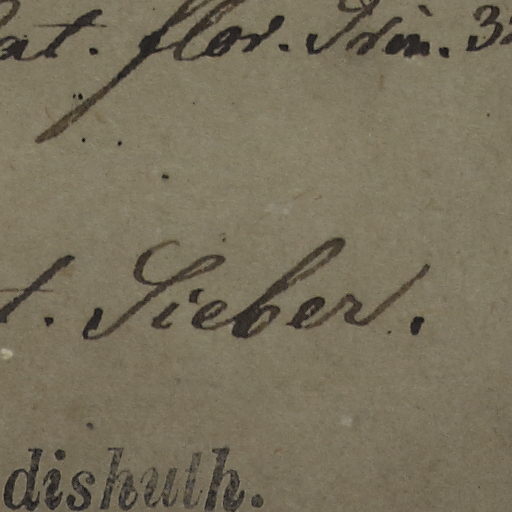 at. flor. Trin. 3
t. Sieber.
dishuth.